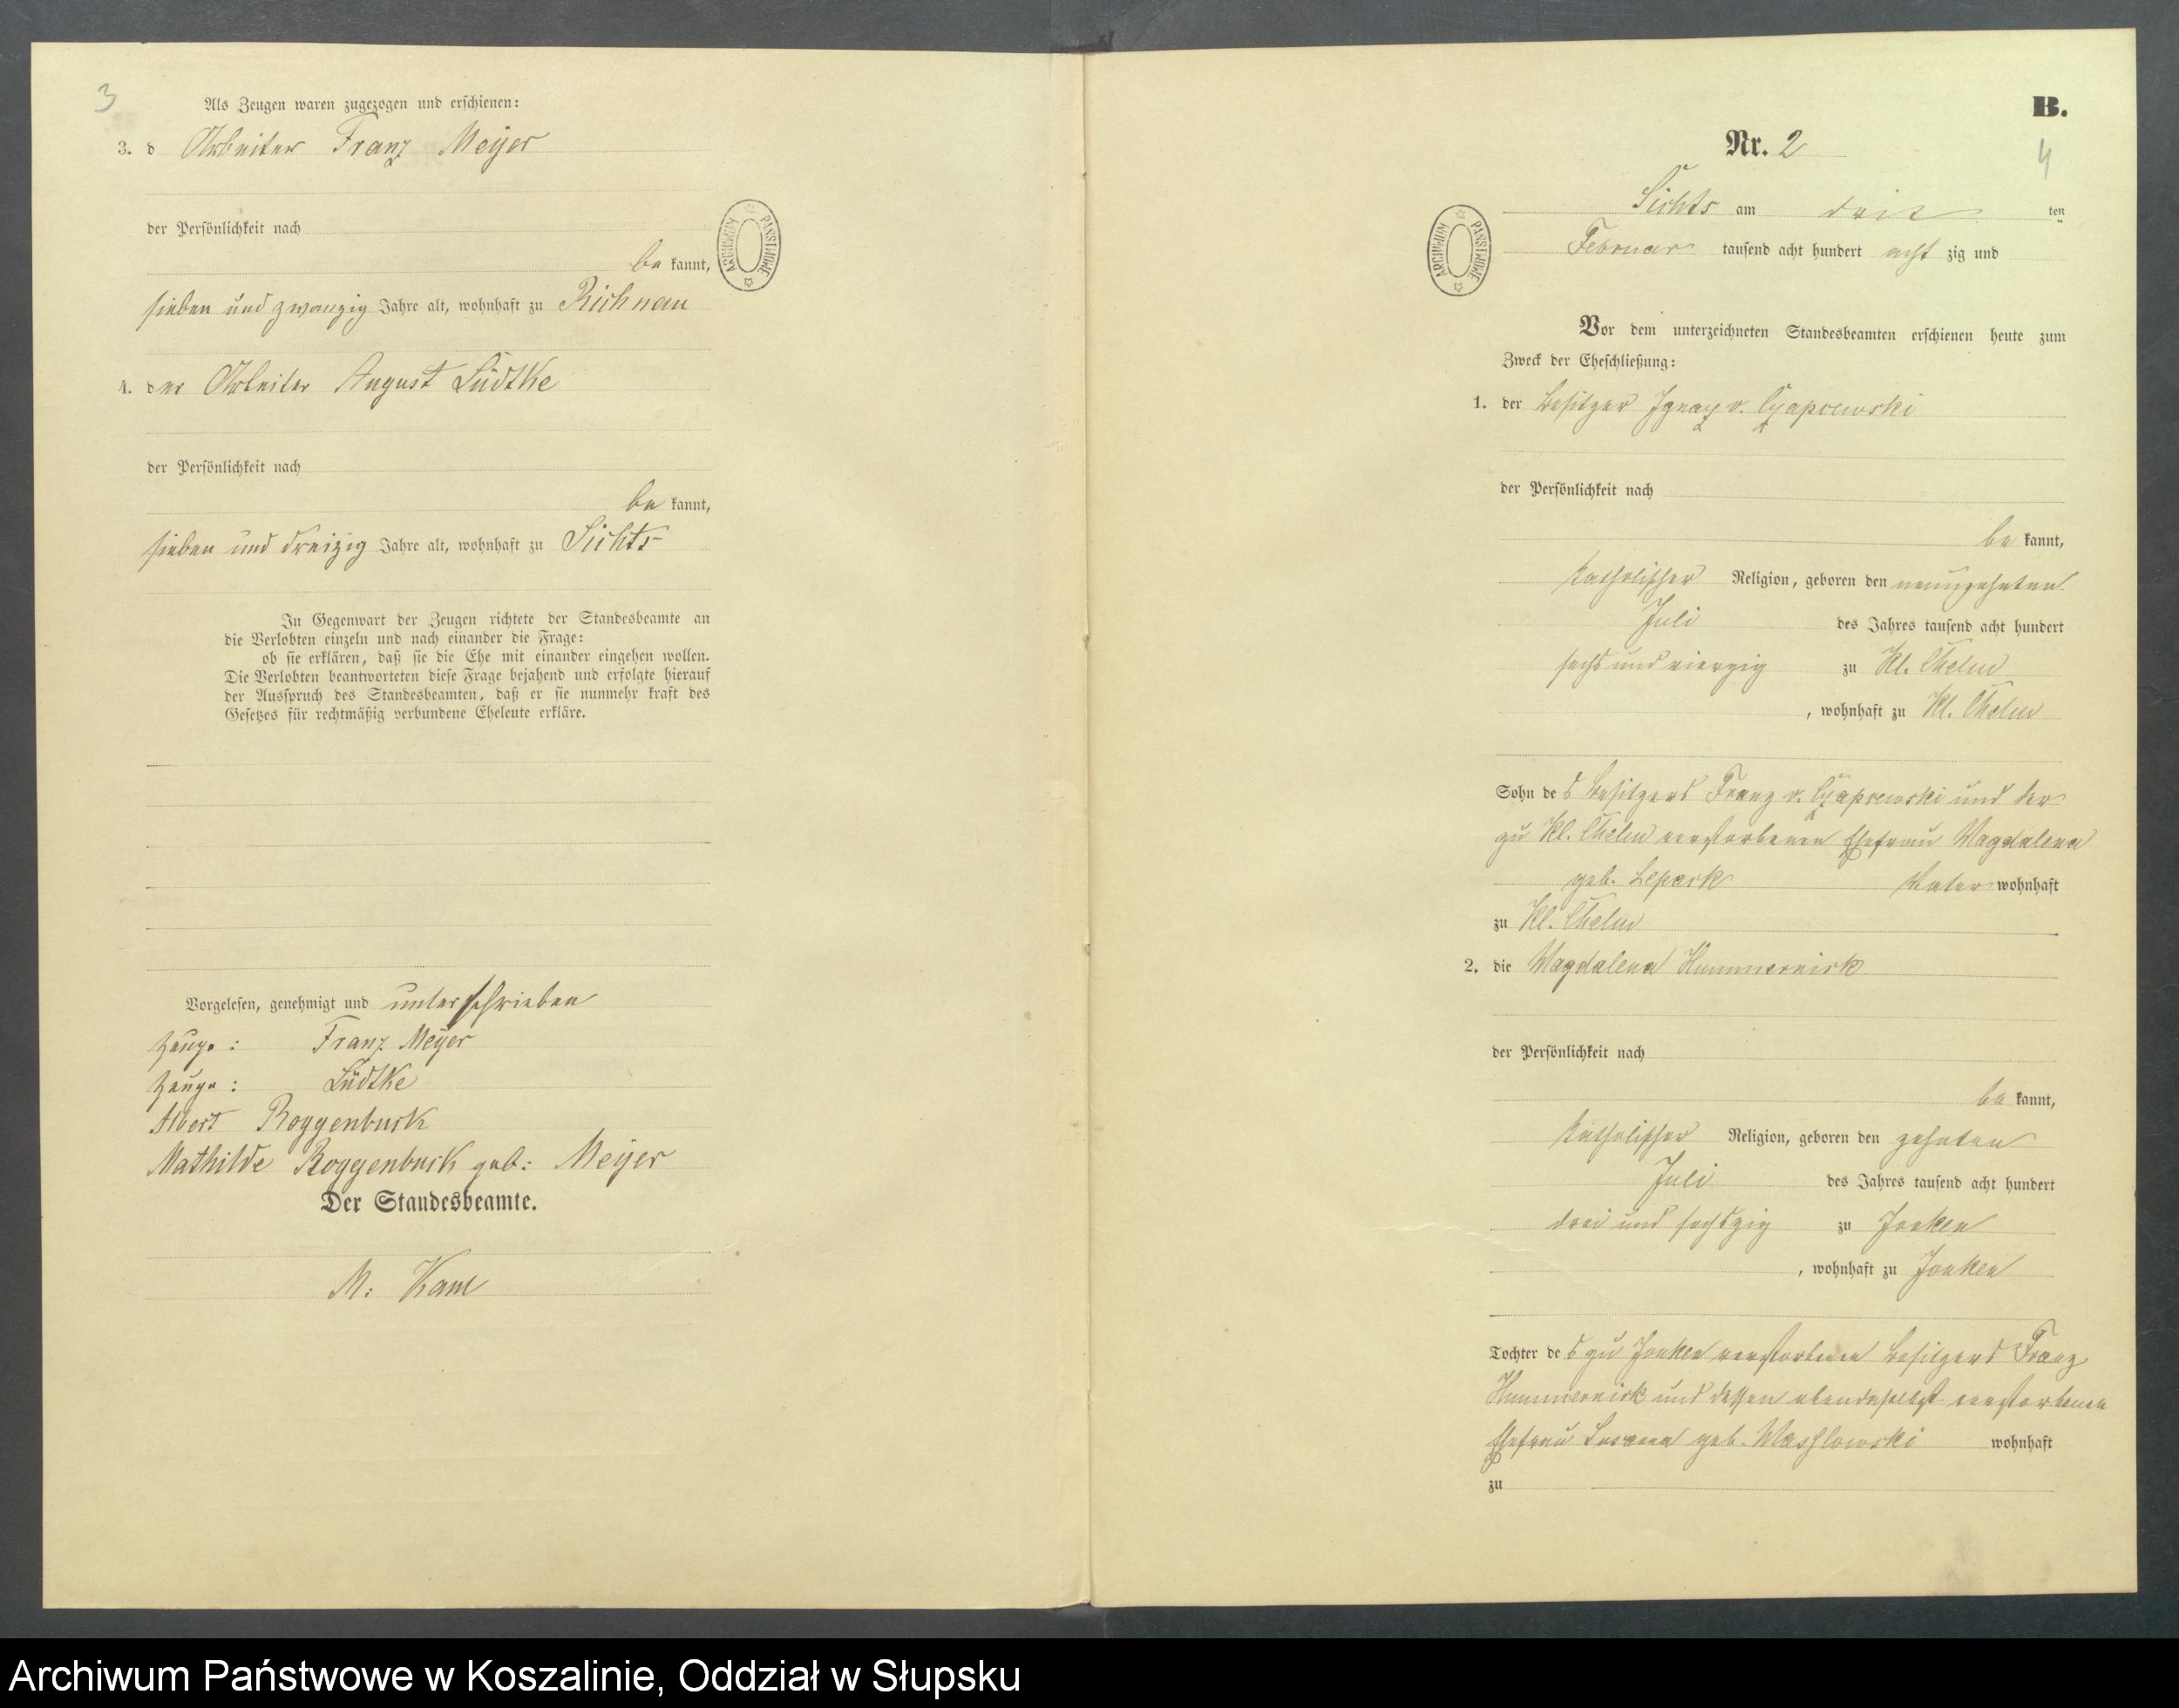 3
Als Zeugen waren zugezogen und erschienen:
3. d Arbeiter Franz Meyer
der Persönlichkeit nach
be kannt,
sieben und zwanzig Jahre alt, wohnhaft zu Richnau
4. der Arbeiter August Lüdtke
der Persönlichkeit nach
be kannt,
sieben und dreizig Jahre alt, wohnhaft zu Sichts
In Gegenwart der Zeugen richtete der Standesbeamte an
die Verlobten einzeln und nach einander die Frage:
ob sie erklären, daß sie die Ehe mit einander eingehen wollen.
Die Verlobten beantworteten diese Frage bejahend und erfolgte hierauf
der Ausspruch des Standesbeamten, daß er sie nunmehr kraft des
Gesetzes für rechtmäßig verbundene Eheleute erkläre.
Vorgelesen, genehmigt und unterschrieben
Zeuge: Franz Meyer
Zeuge: Lüdtke
Albert Roggenbuck
Mathilde Roggenbuck geb: Meyer
Der Standesbeamte.
M: Kam
ARCHIWUM PAŃSTWOWE
B.
Nr. 2
4
Sichts am drit ten
Februar tausend acht hundert acht zig und
ARCHIWUM PAŃSTWOWE
Vor dem unterzeichneten Standesbeamten erschienen heute zum
Zweck der Eheschließung:
1. der Besitzer Ignaz v. Czapiewski
der Persönlichkeit nach
be kannt,
katholischer Religion, geboren den neunzehnten
Juli des Jahres tausend acht hundert
sechs und vierzig zu Kl. Chelm
, wohnhaft zu Kl. Chelm
Sohn de s Besitzers Franz v. Czapiewski und der
zu Kl. Chelm verstorbenen Ehefrau Magdalena
geb. Lepack Vater wohnhaft
zu Kl. Chelm
2. die Magdalena Hummernick
der Persönlichkeit nach
be kannt,
katholischer Religion, geboren den zehnten
Juli des Jahres tausend acht hundert
drei und sechszig zu Jonken
, wohnhaft zu Jonken
Tochter de s zu Jonken verstorbenen Besitzers Franz
Hummernick und dessen ebendaselbst verstorbenen
Ehefrau Susanna geb. Waschlowski wohnhaft
zu
Archiwum Państwowe w Koszalinie, Oddział w Słupsku